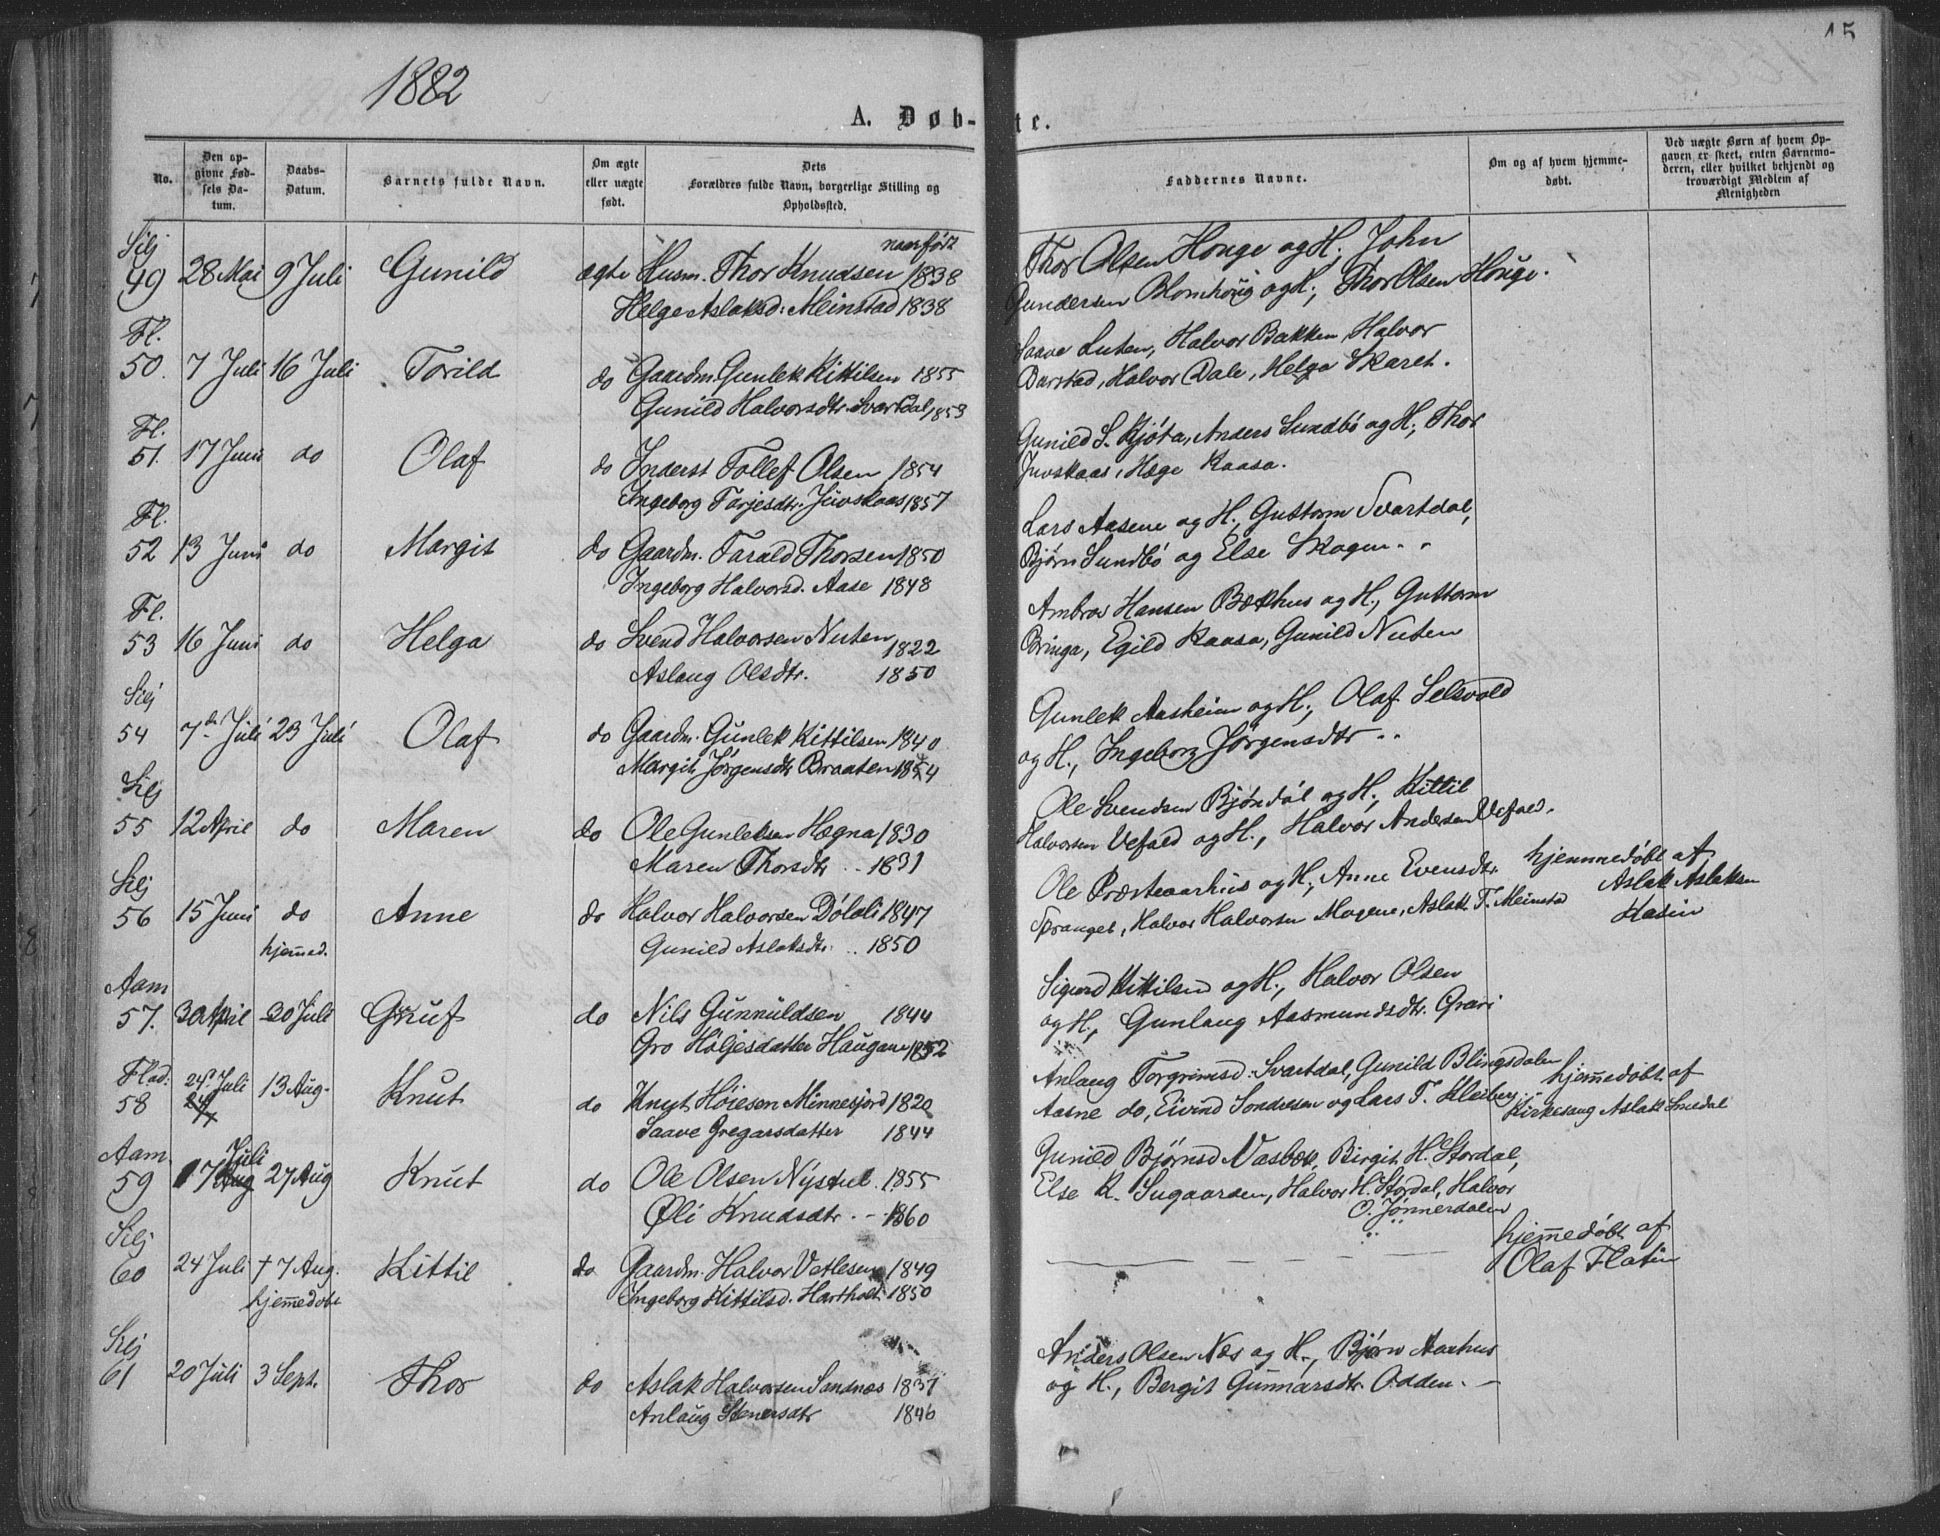 1882
15
A. Døb-te.
No.
Den op-
givne Fød-
sels Da-
tum.
Daabs-
Datum.
Barnets fulde Navn.
Om ægte
eller uægte
født.
Dets
Forældres fulde Navn, borgerlige Stilling og
Opholdssted.
Faddernes Navne.
Om og af hvem hjemme-
døbt.
Ved uægte Børn af hvem Op-
gaven er skeet, enten Barnemo-
deren, eller hvilket bekjendt og
troværdigt Medlem af
Menigheden
Silj
49 28 Mai 9 Juli Gunild ægte Husm. Thor Knudsen 1838
Helge Aslaksd: Meinstad 1838
Thor Olsen Houge og H; John
Gundersen Blomhoug og H; Thor Olsen Houge.
Fl.
50. 7 Juli 16 Juli Torild do Gaardm. Gunlek Kittilsen 1855
Gunild Halvorsdtr. Svartdal 1853
Saave Luten, Halvor Bakken, Halvor
Barstad, Halvor Dale, Helga Skaret.
Fl.
51. 17 Juni do Olaf do Inderst Tollef Olsen 1854
Ingeborg Tarjesdtr. Juvskaas 1857
Gunild S. Kjøta, Anders Sundbø og H; Thor
Juvskaas, Hæge Kaasa.
Fl.
52 13 Juni do Margit do Gaardm. Tarald Thorsen 1850
Ingeborg Halvorsd. Aase 1848
Lars Aasene og H., Guttorm Svartdal,
Bjørn Sundbø og Else Skogen.
Fl.
53 16 Juni do Helga do Svend Halvorsen Nuten 1822
Aslaug Olsdtr. 1850
Ambros Hansen Bækhus og H., Guttorm
Bringa, Egild Kaasa, Gunild Nuten
Silj
54 7de Juli 23 Juli Olaf do Gaardm. Gunlek Kittilsen 1840
Margit Jørgensdtr Braaten
Gunlek Aasheim og H., Olaf Selsvold
og H., Ingeborg Jørgensdtr
Silj
55 12 April do Maren do Ole Gunleksen Hægna 1830
Maren Thorsdtr 1831
Ole Svendsen Bjøndal og H., Kittil
Halvorsen Vefald og H., Halvor Andersen Vefald.
Silj
56 15 Juni do Anne do Halvor Halvorsen Døloli 1847
hjemmed. Gunild Aslaksdtr. 1850
Ole Præsteaarhus og H., Anne Evensdtr. hjemmedøbt af
Spranget, Halvor Halvorsen Mogene, Aslak T. Meinstad Aslak Aslaksen
Kasin
Aam
57. 30 April 30 Juli do Nils Gunnuldsen 1844
Gro Høljesdatter Haugane 1852
Sigurd Kittilsen og H., Halvor Olsen
og H., Gunlaug Aasmundsdtr. Gravi
Flad.
58 24 Juli 13 Aug. Knut do Knut Høiesen Minnesjord 1820
Saave Gregarsdatter 1844
Anlaug Torgrimsd: Svartdal, Gunild Blingsdalen hjemmedøbt af
Aasne do, Eivind Sondresen og Lars T. Kleiberg Kirkesang Aslak Smedal
Aam.
59 17 Juli 27 Aug Knut do Ole Olsen Nystul 1855
Øli Knudsdtr. 1860
Gunild Bjørnsd Vasbæk, Birgit H. Stordal,
Else K. Sugaarden, Halvor H. Stordal, Halvor
O. Jønnerdalen
Silj
60 24 Juli † 7 Aug. Kittil do Gaardm. Halvor Vetlesen 1849
hjemmedøbt Ingeborg Kittilsd. Hartholt 1850
hjemmedøbt af
Olaf Flatin
Silj
61 20 Juli 3 Sept. Thor do Aslak Halvorsen Sandnæs 1837
Anlaug Stenersdtr 1846
Anders Olsen Næs og H., Bjørn Aarhus
og H., Bergit Gunnarsdtr. Odden.